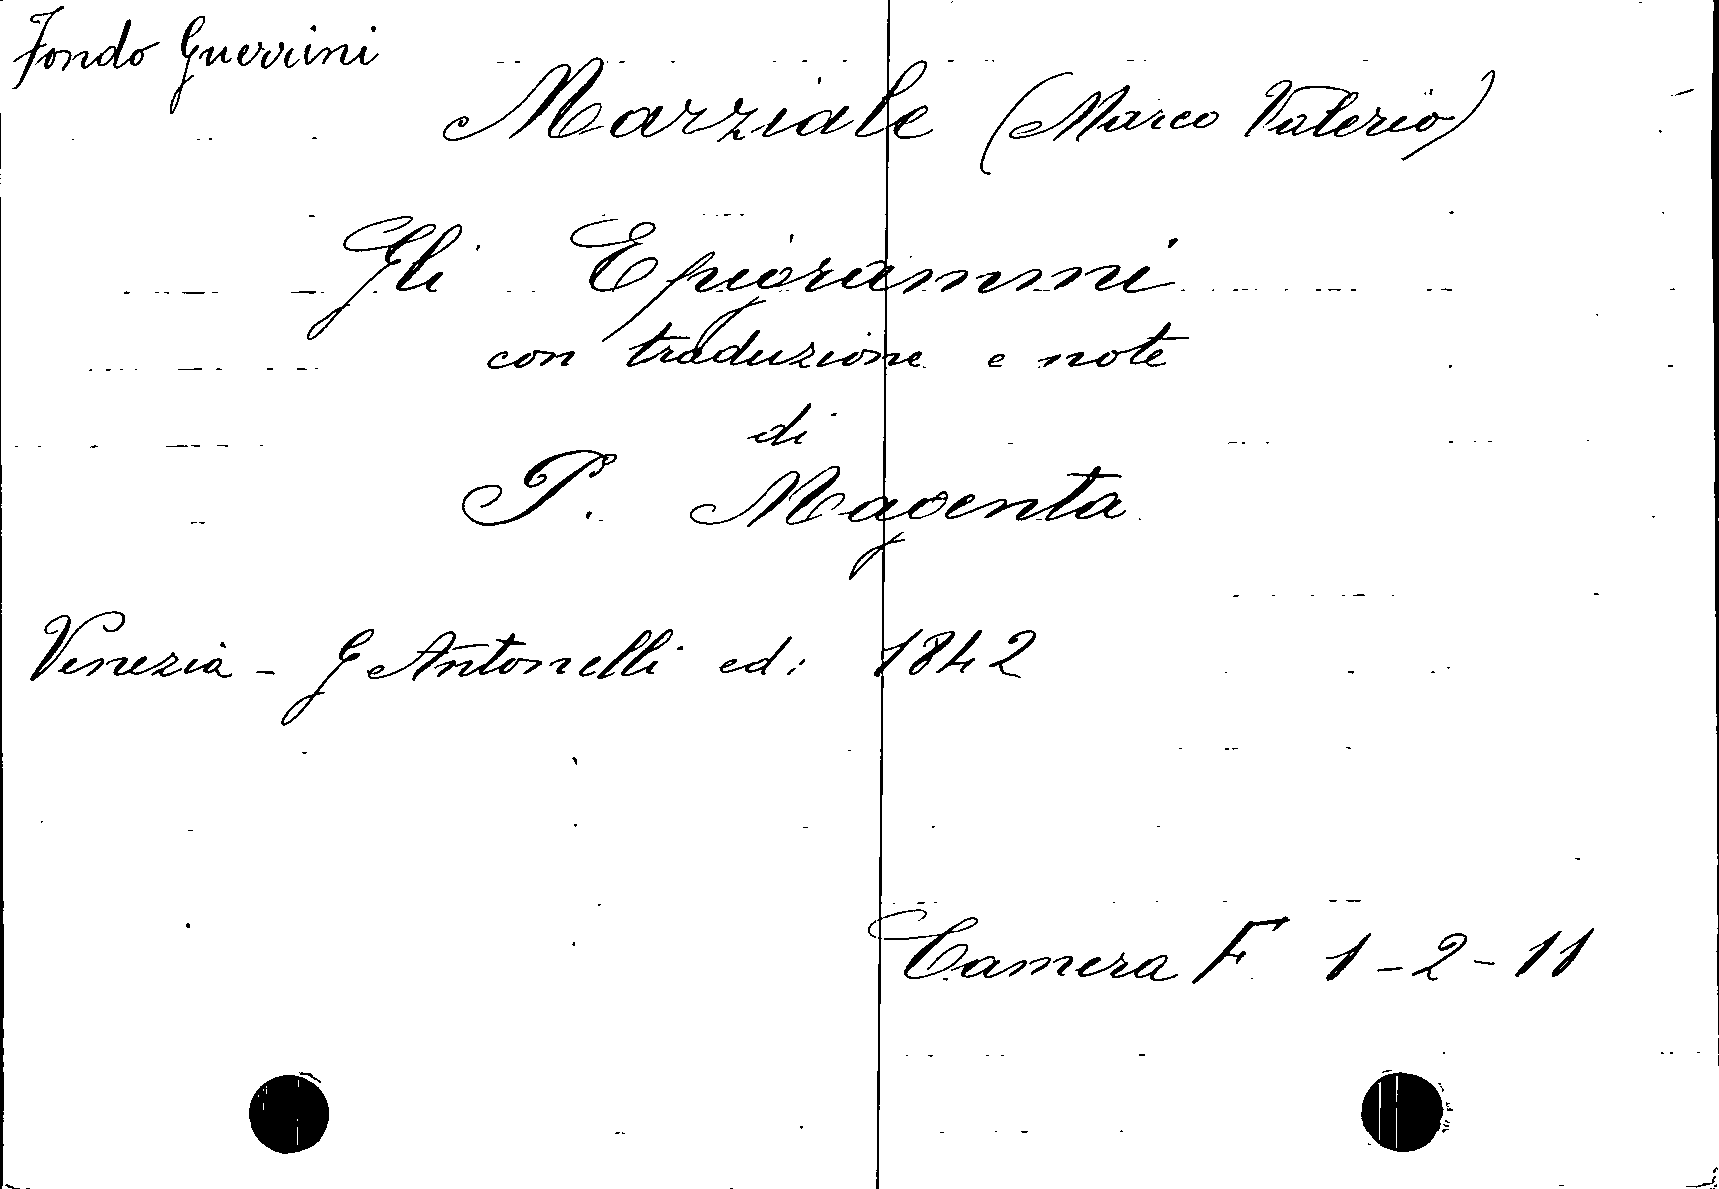 Fondo Guerrini
Marziale (Marco Valerio)
Gli Epigrammi
con traduzione e note
di
P. Magenta
Venezia - G Antonelli ed: 1842
Camera F 1-2-11